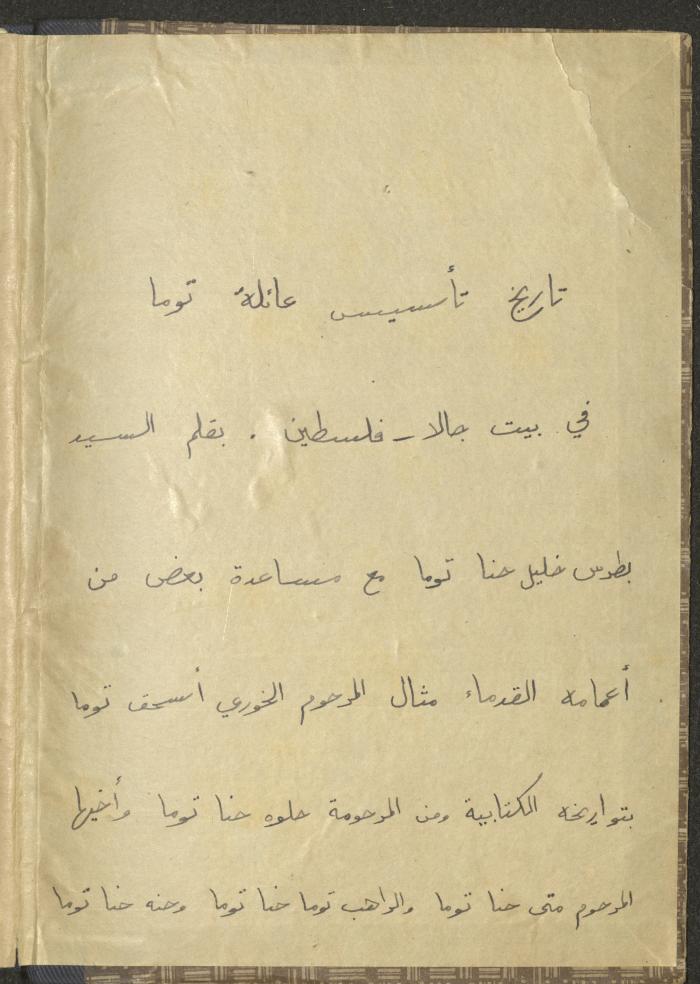 تاريخ تأسيس عائلة توما
في بيت جالا - فلسطين . بقلم السيد
بطرس خليل حنا توما مع مساعدة بعض من
أعمامه القدماء مثال المرحوم الخوري أسحق توما
بتواريخه الكتابية ومن المرحومة حلوه حنا توما وأخيها
المرحوم متى حنا توما والراهب توما حنا توما وحنه حنا توما